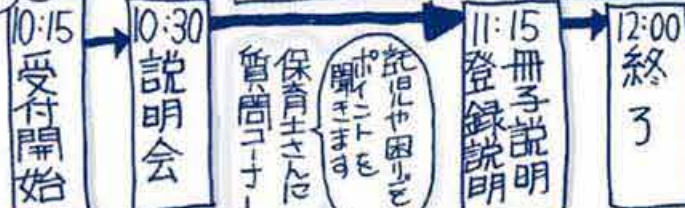 10:15
受付開始
10:30
説明会
保育士さんに
質問コーナー
託児や困りごと
ポイントを
聞きます
11:15
冊子説明
登録説明
12:00
終了